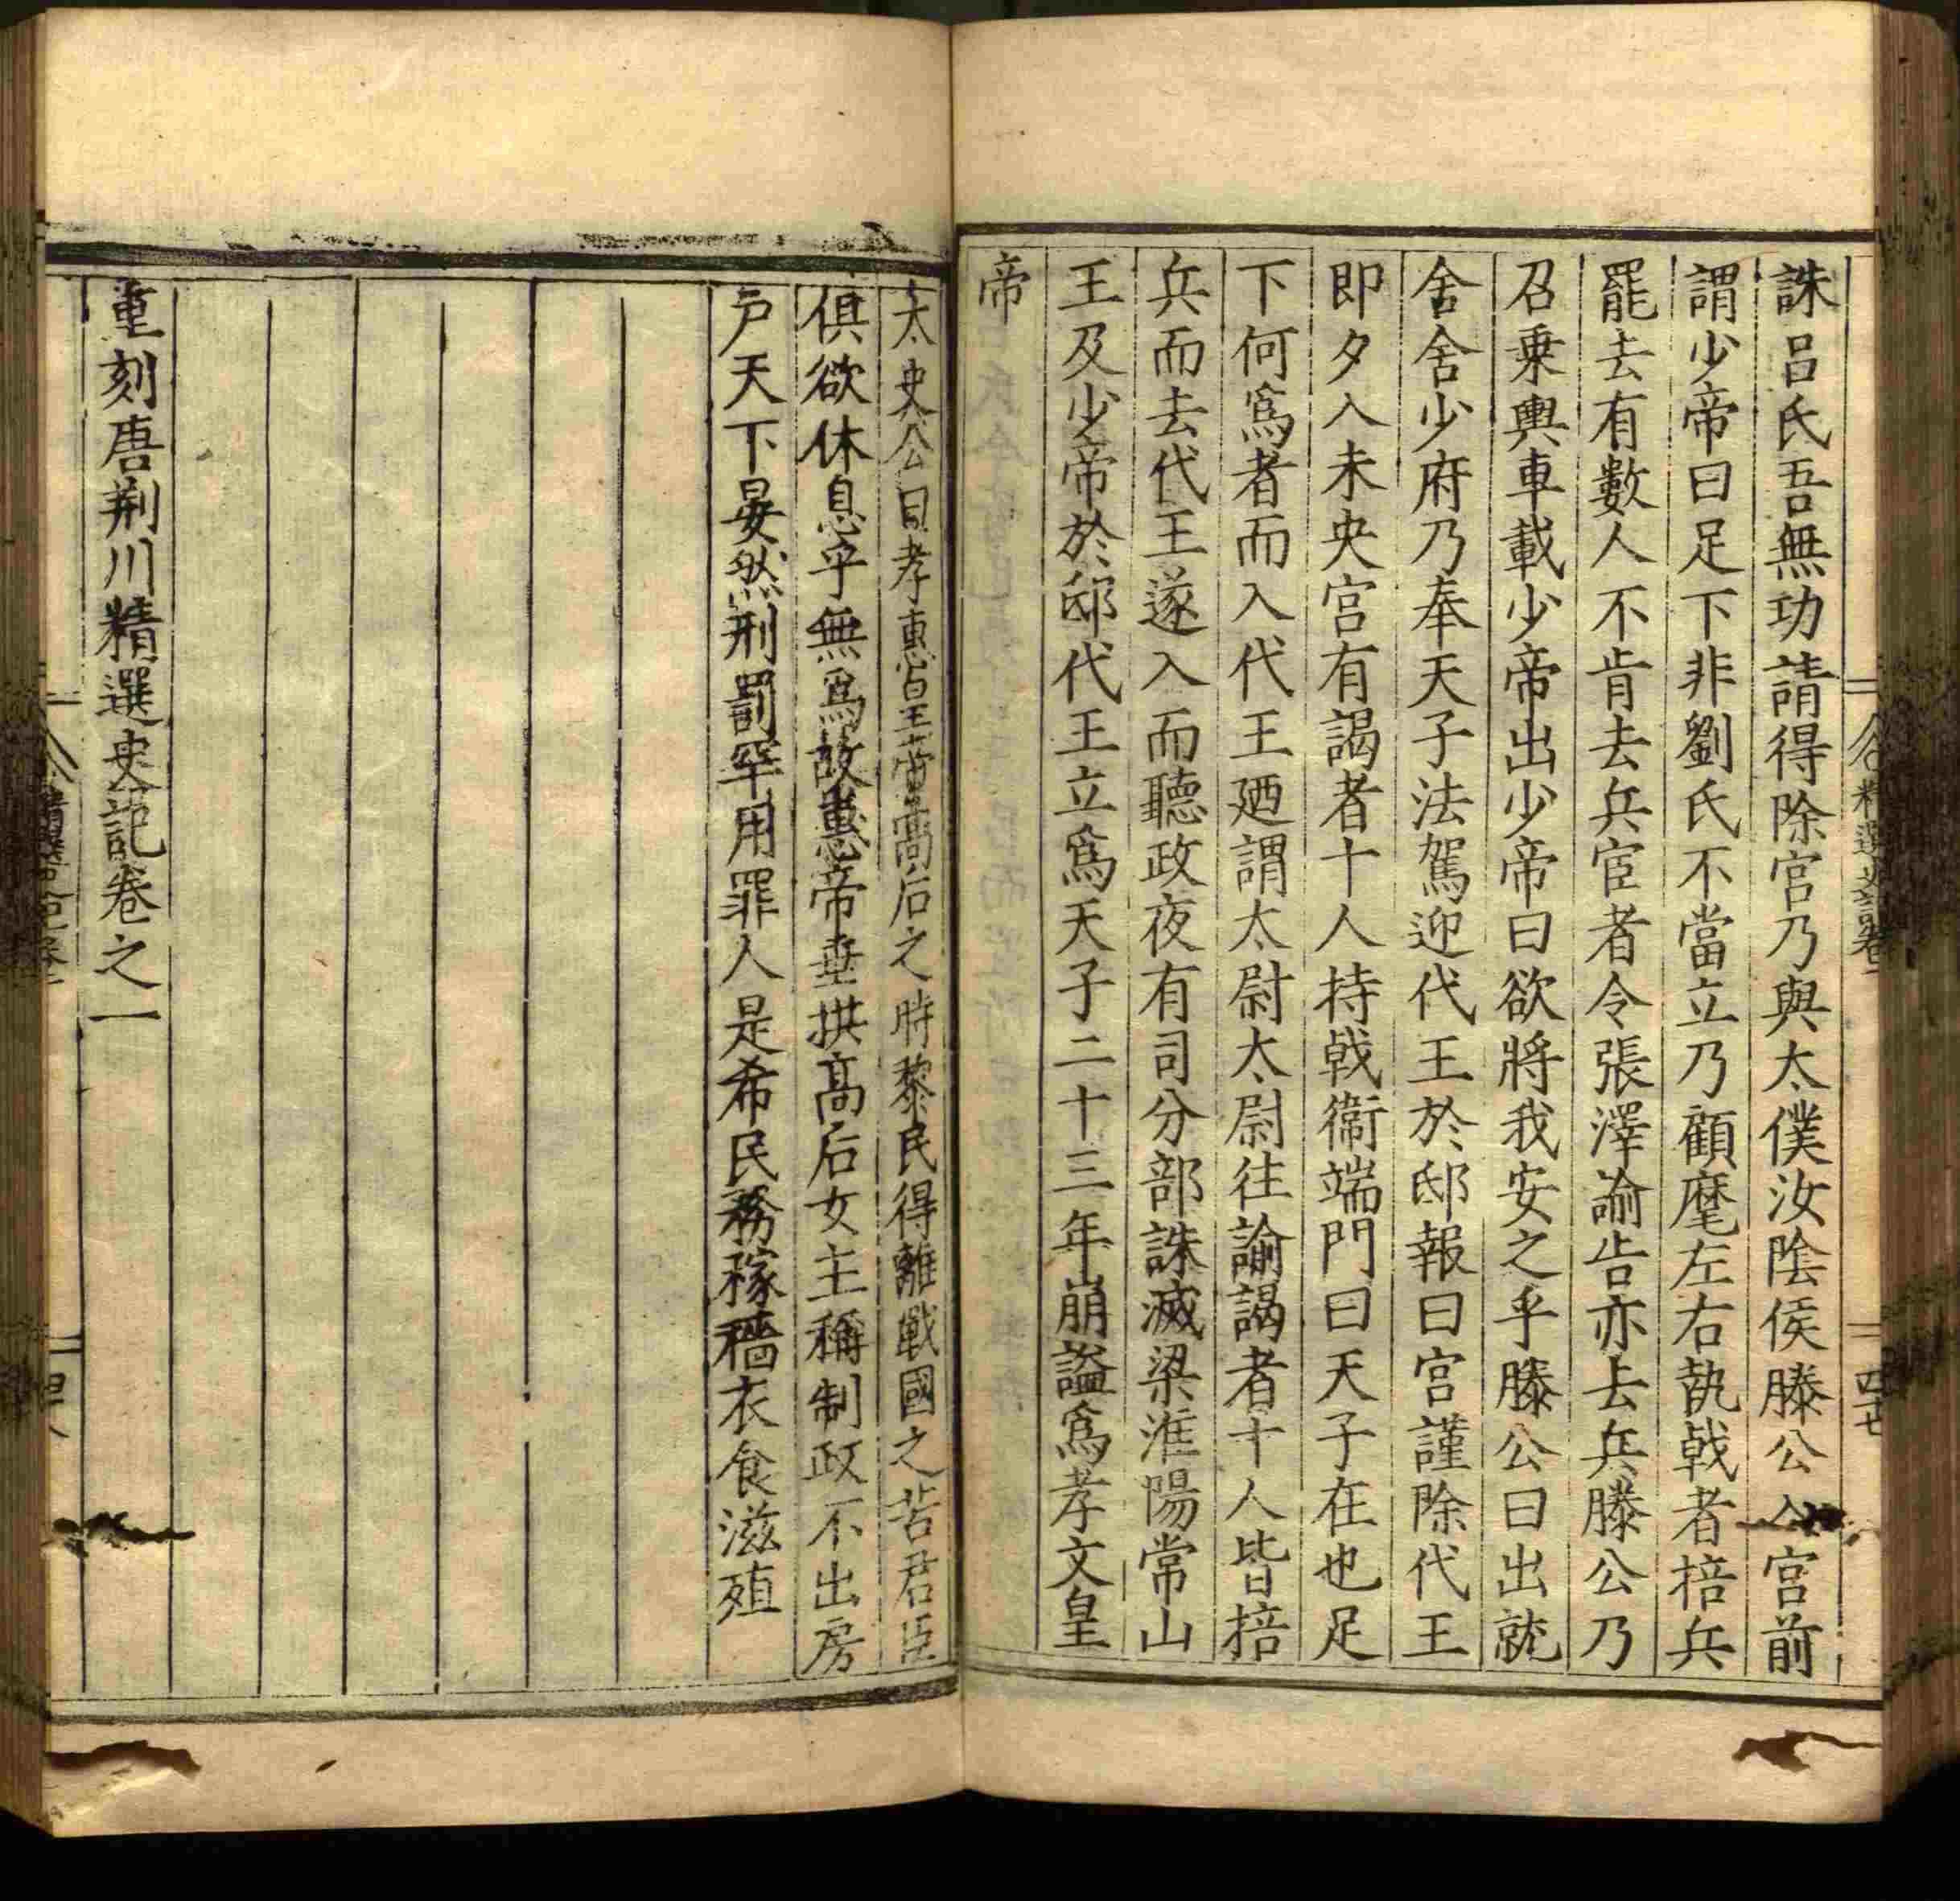 誅呂氏吾無功請得除宮乃與太僕汝陰侯滕公入宮前
謂少帝曰足下非劉氏不當立乃顧麾左右執戟者掊兵
罷去有數人不肯去兵宦者令張澤諭告亦去兵滕公乃
召乗輿車載少帝出少帝曰欲將我安之乎滕公曰出就
舍舍少府乃奉天子法駕迎代王於邸報曰宮謹除代王
即夕入未央宮有謁者十人持戟衛端門曰天子在也足
下何爲者而入代王廼謂太尉太尉往諭謁者十人皆掊
兵而去代王遂入而聽政夜有司分部誅滅梁淮陽常山
王及少帝於邸代王立爲天子二十三年崩謚爲孝文皇
帝
精選史記卷一
四十七
太史公曰孝惠皇帝髙后之時黎民得離戰國之苦君臣
俱欲休息乎無爲故惠帝垂拱髙后女主稱制政不出房
户天下晏然刑罰罕用罪人是希民務稼穡衣食滋殖
重刻唐荆川精選史記卷之一